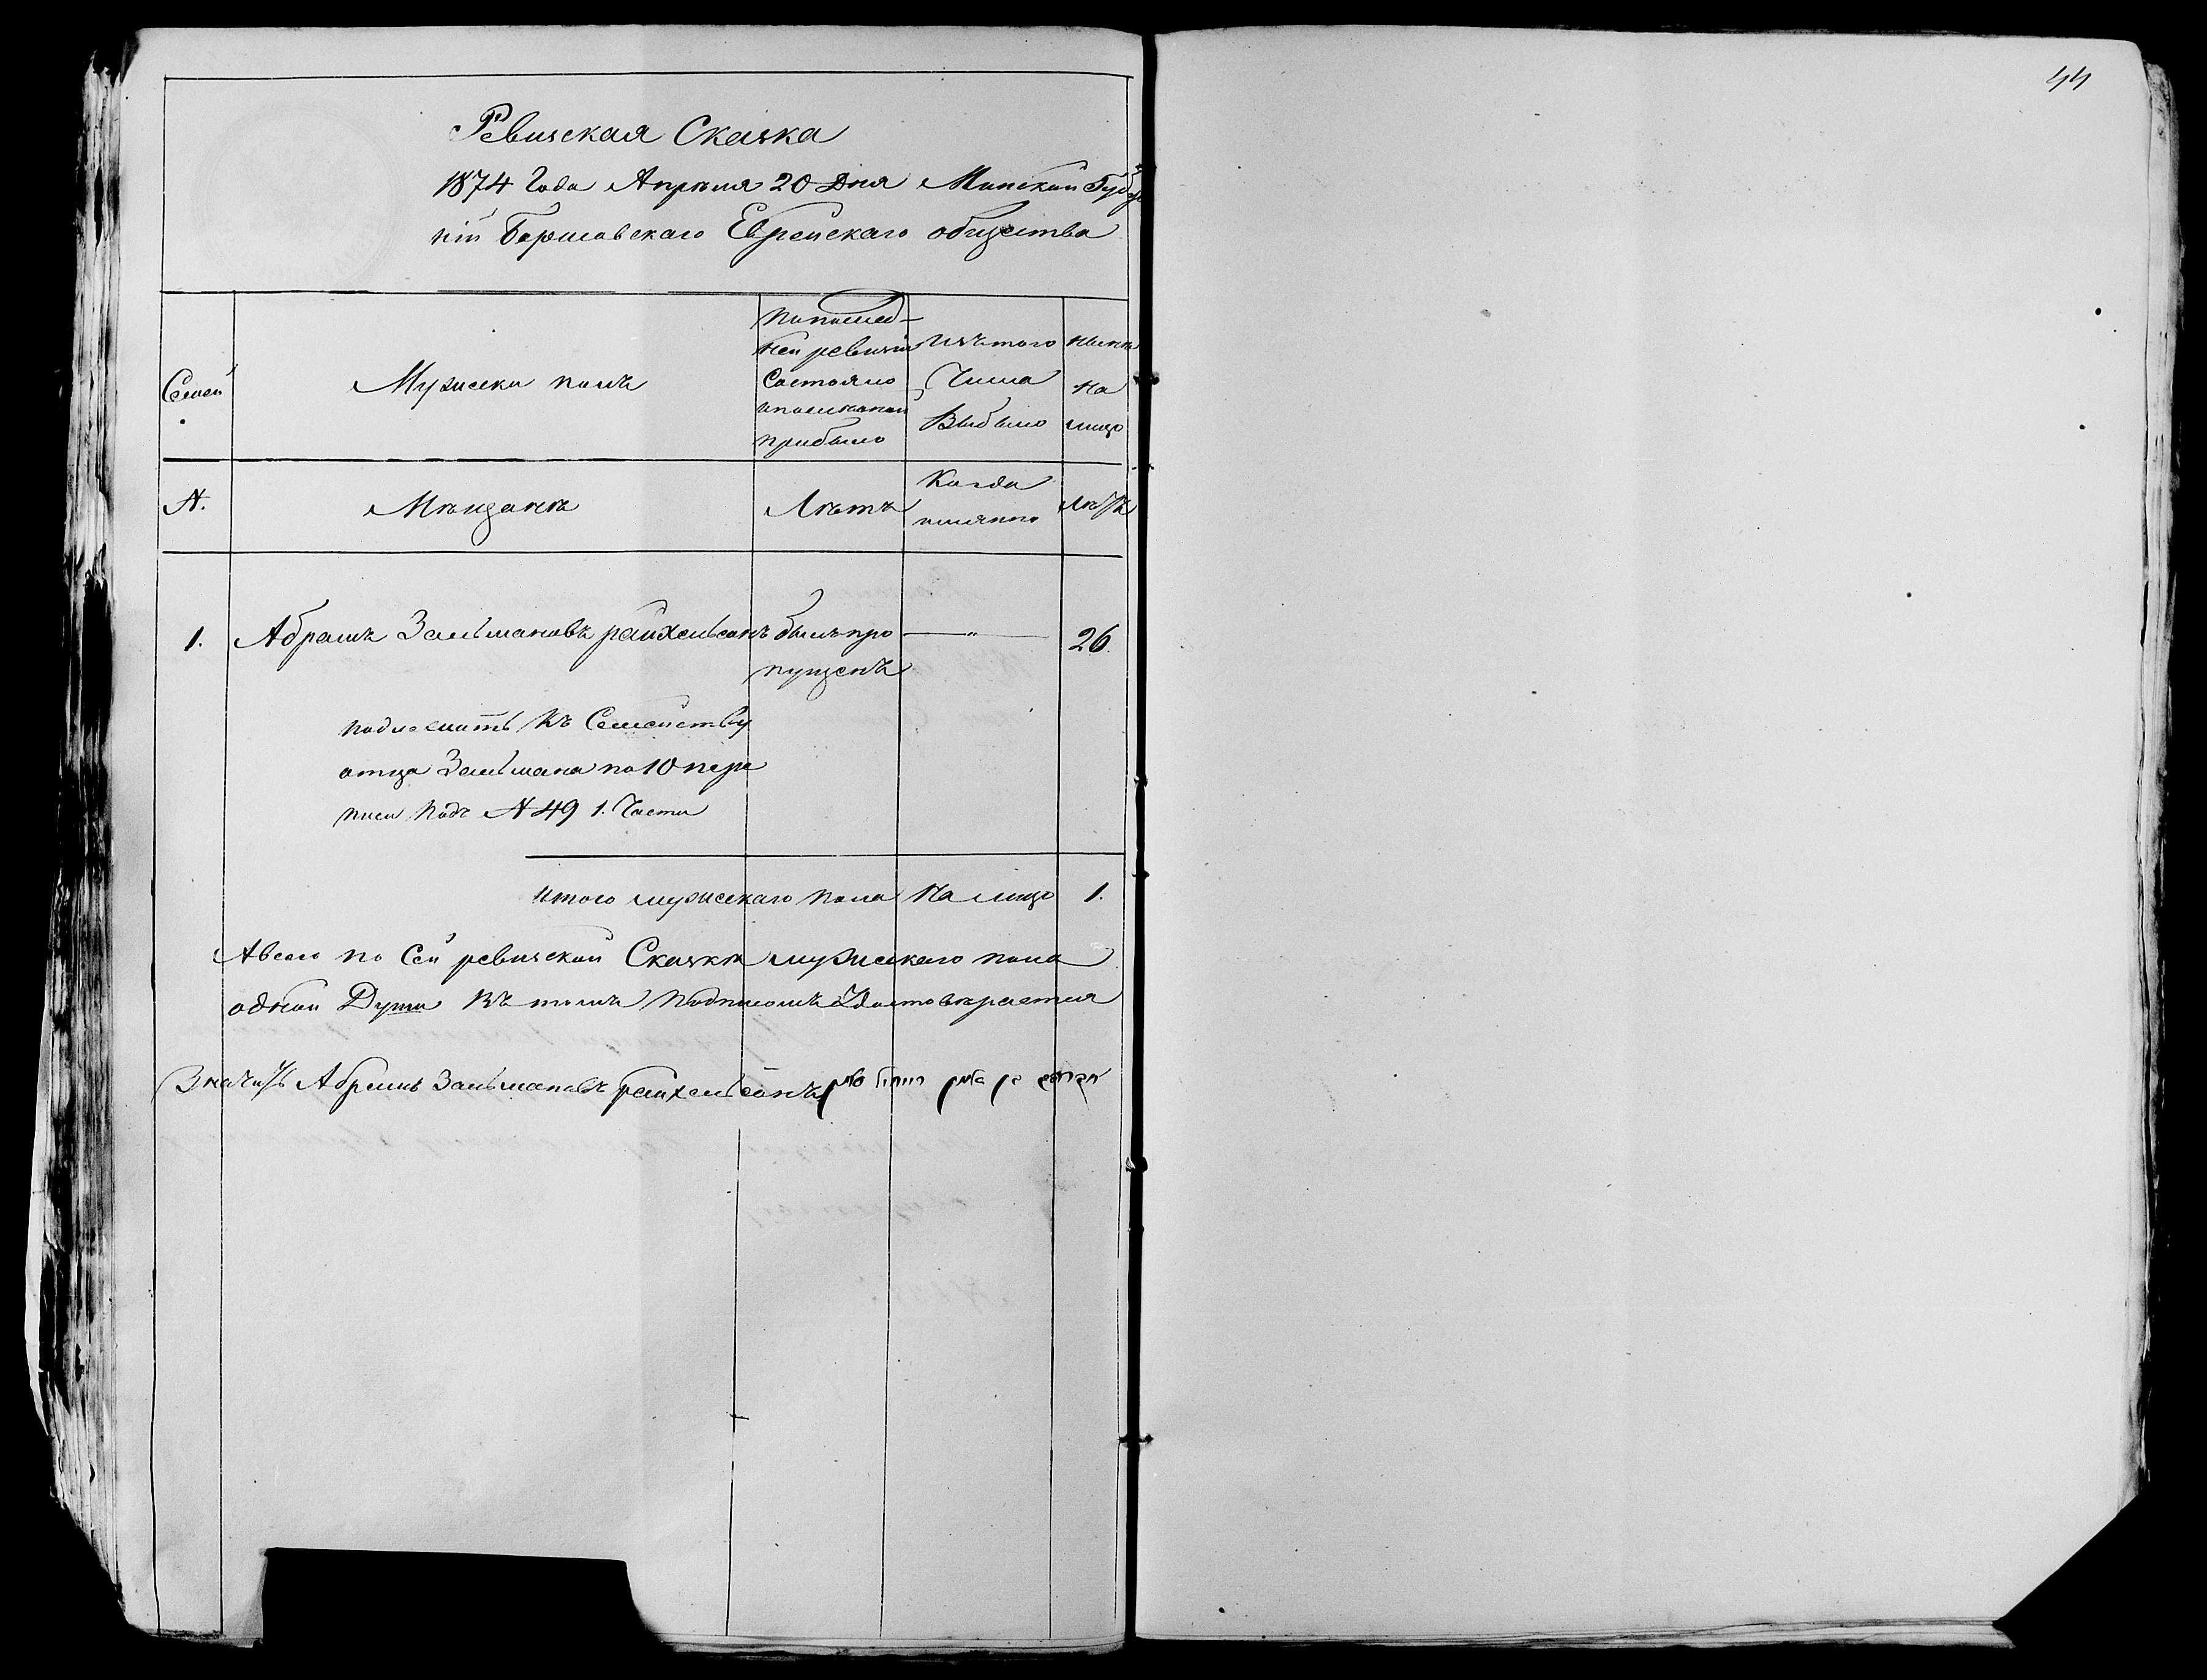 44
Ревизская Сказка
1874 Года Апрѣля 20 Дня Минской Губер
ніи Борисовскаго Еврейскаго общества
Семей
Мужеска полъ
Попослед-
ней ревизіи
Состояло
ипослѣоной
прибыло
Изътого
Числа
Выбыло
нынѣ
На
лицо
N.
Мѣщанѣ
Лѣтъ
Когда
имянно
Лѣтъ
1. Абрамъ Зальмановъ райхельсонъ былъ про — " — 26.
пущенъ
подлежитъ Къ Семейству
отца Зальмана по 10 пере
писи подъ N 49 1. Части
итого мужескаго пола На лицо 1.
Авсего по Сей ревизской Сказки мужескаго пола
одной Души Въ томъ подписомъ Удостовѣрается
Значитъ Абрамъ Зальмановъ райхельсонъ